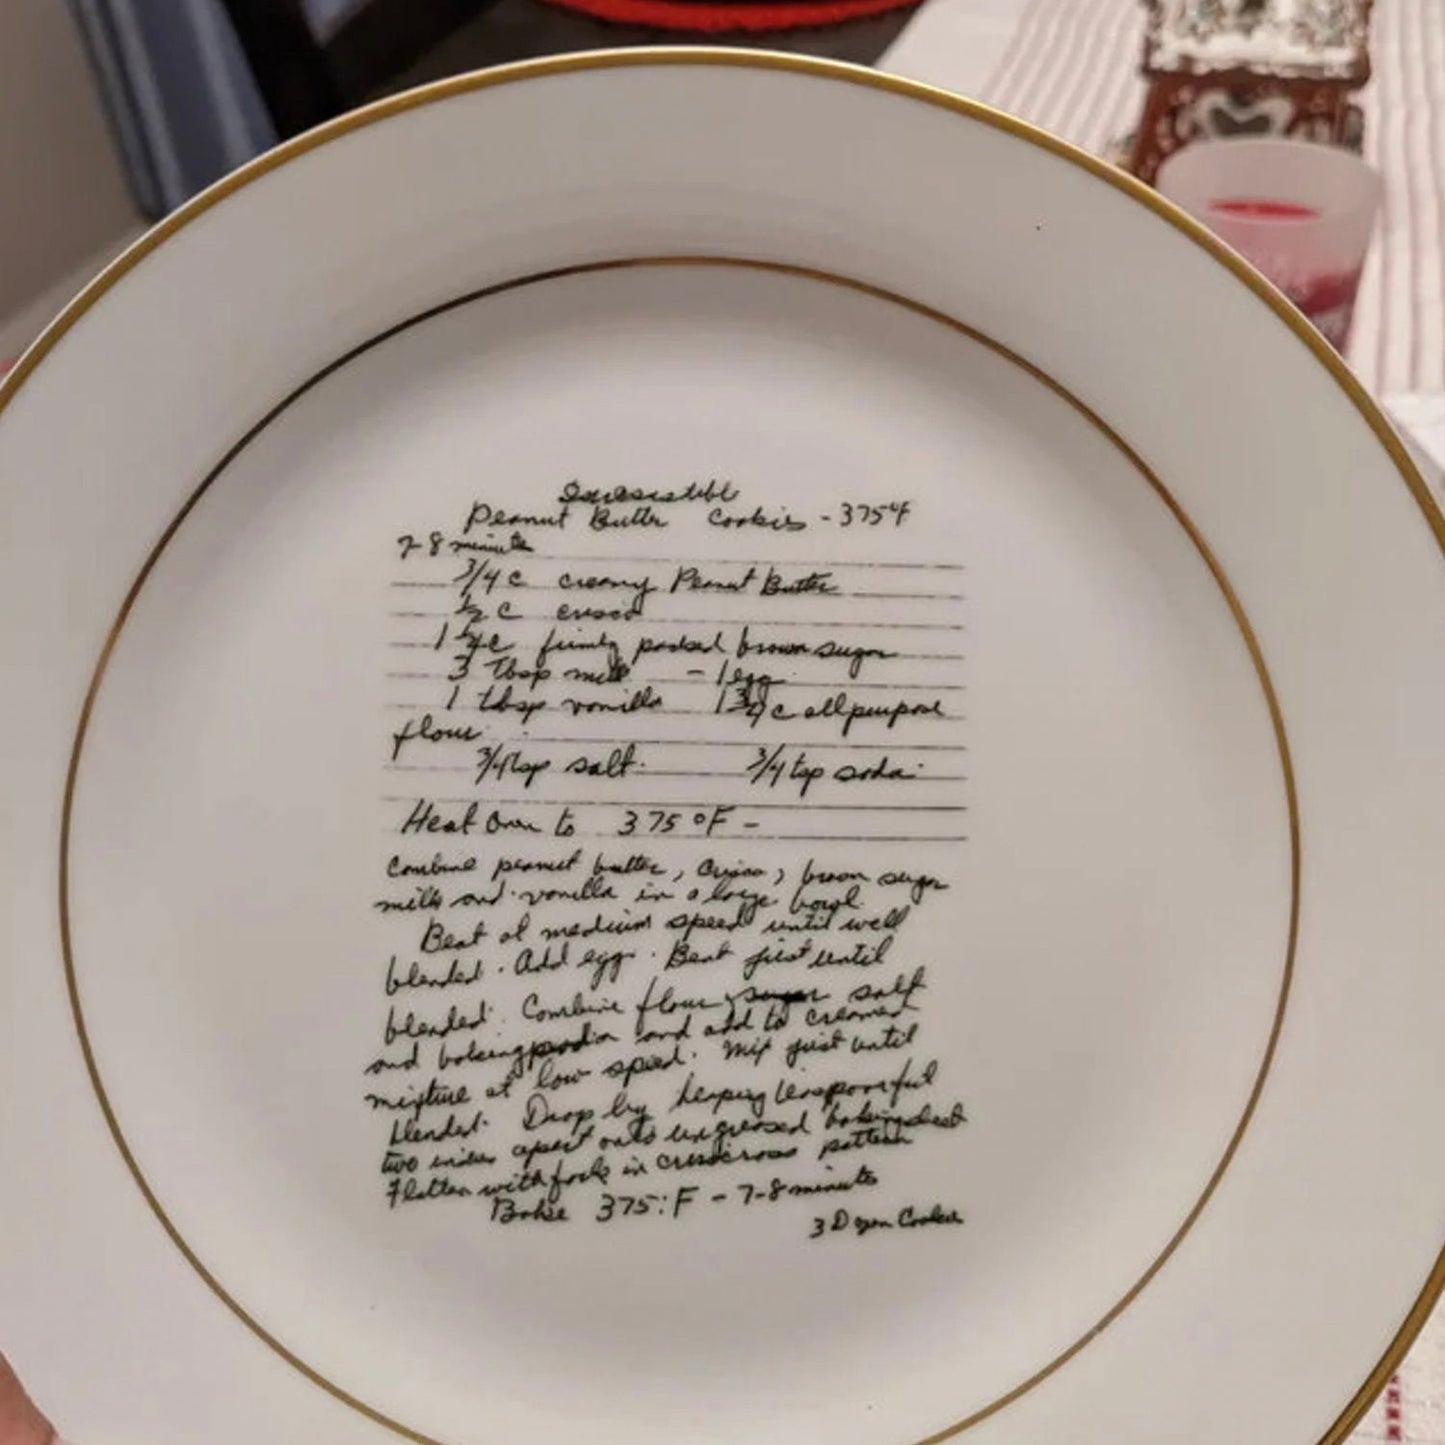 Irresistible
Peanut Butter Cookies - 375°F
7-8 minute
3/4 c creamy Peanut Butter
1/2 c crisco
1 1/4 c firmly packed brown sugar
3 Tbsp milk - 1 egg
1 tbsp vanilla 1 3/4 c all purpose
flour
3/4 tsp salt. 3/4 tsp soda
Heat Oven to 375°F -
Combine peanut butter, Crisco, brown sugar
milk and vanilla in a large bowl.
Beat at medium speed until well
blended. Add egg. Beat just until
blended. Combine flour, sugar salt
and baking and add to creamed
mixture at low speed. Mix just until
blended. Drop by heaping teaspoonful
two inches apart onto ungreased baking sheet
Flatten with fork in crisscross pattern
Bake 375°F - 7-8 minutes
3 Dozen Cookies